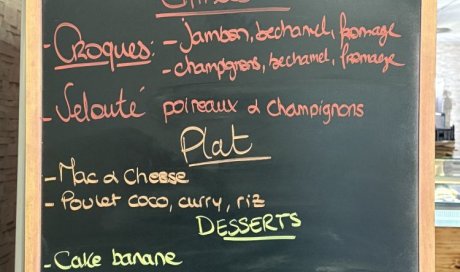 - Croques: - Jambon, bechamel, fromage
- champignons, bechamel, fromage
- Velouté poireaux & champignons
Plat
- Mac & Cheese
- Poulet coco, curry, riz
DESSERTS
- Cake banane